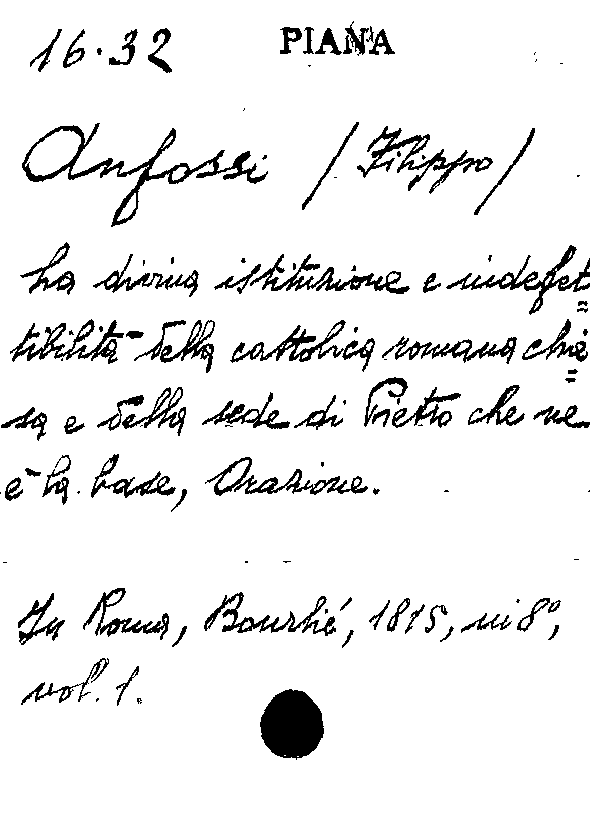 16.32 PIANA
Anfossi (Filippo)
La divina istituzione e indefet=
tibilità della cattolica romana chie=
sa e della sede di Pietro che ne
è la base, Orazione.
In Roma, Bourlié, 1815, in 8°,
vol. 1.